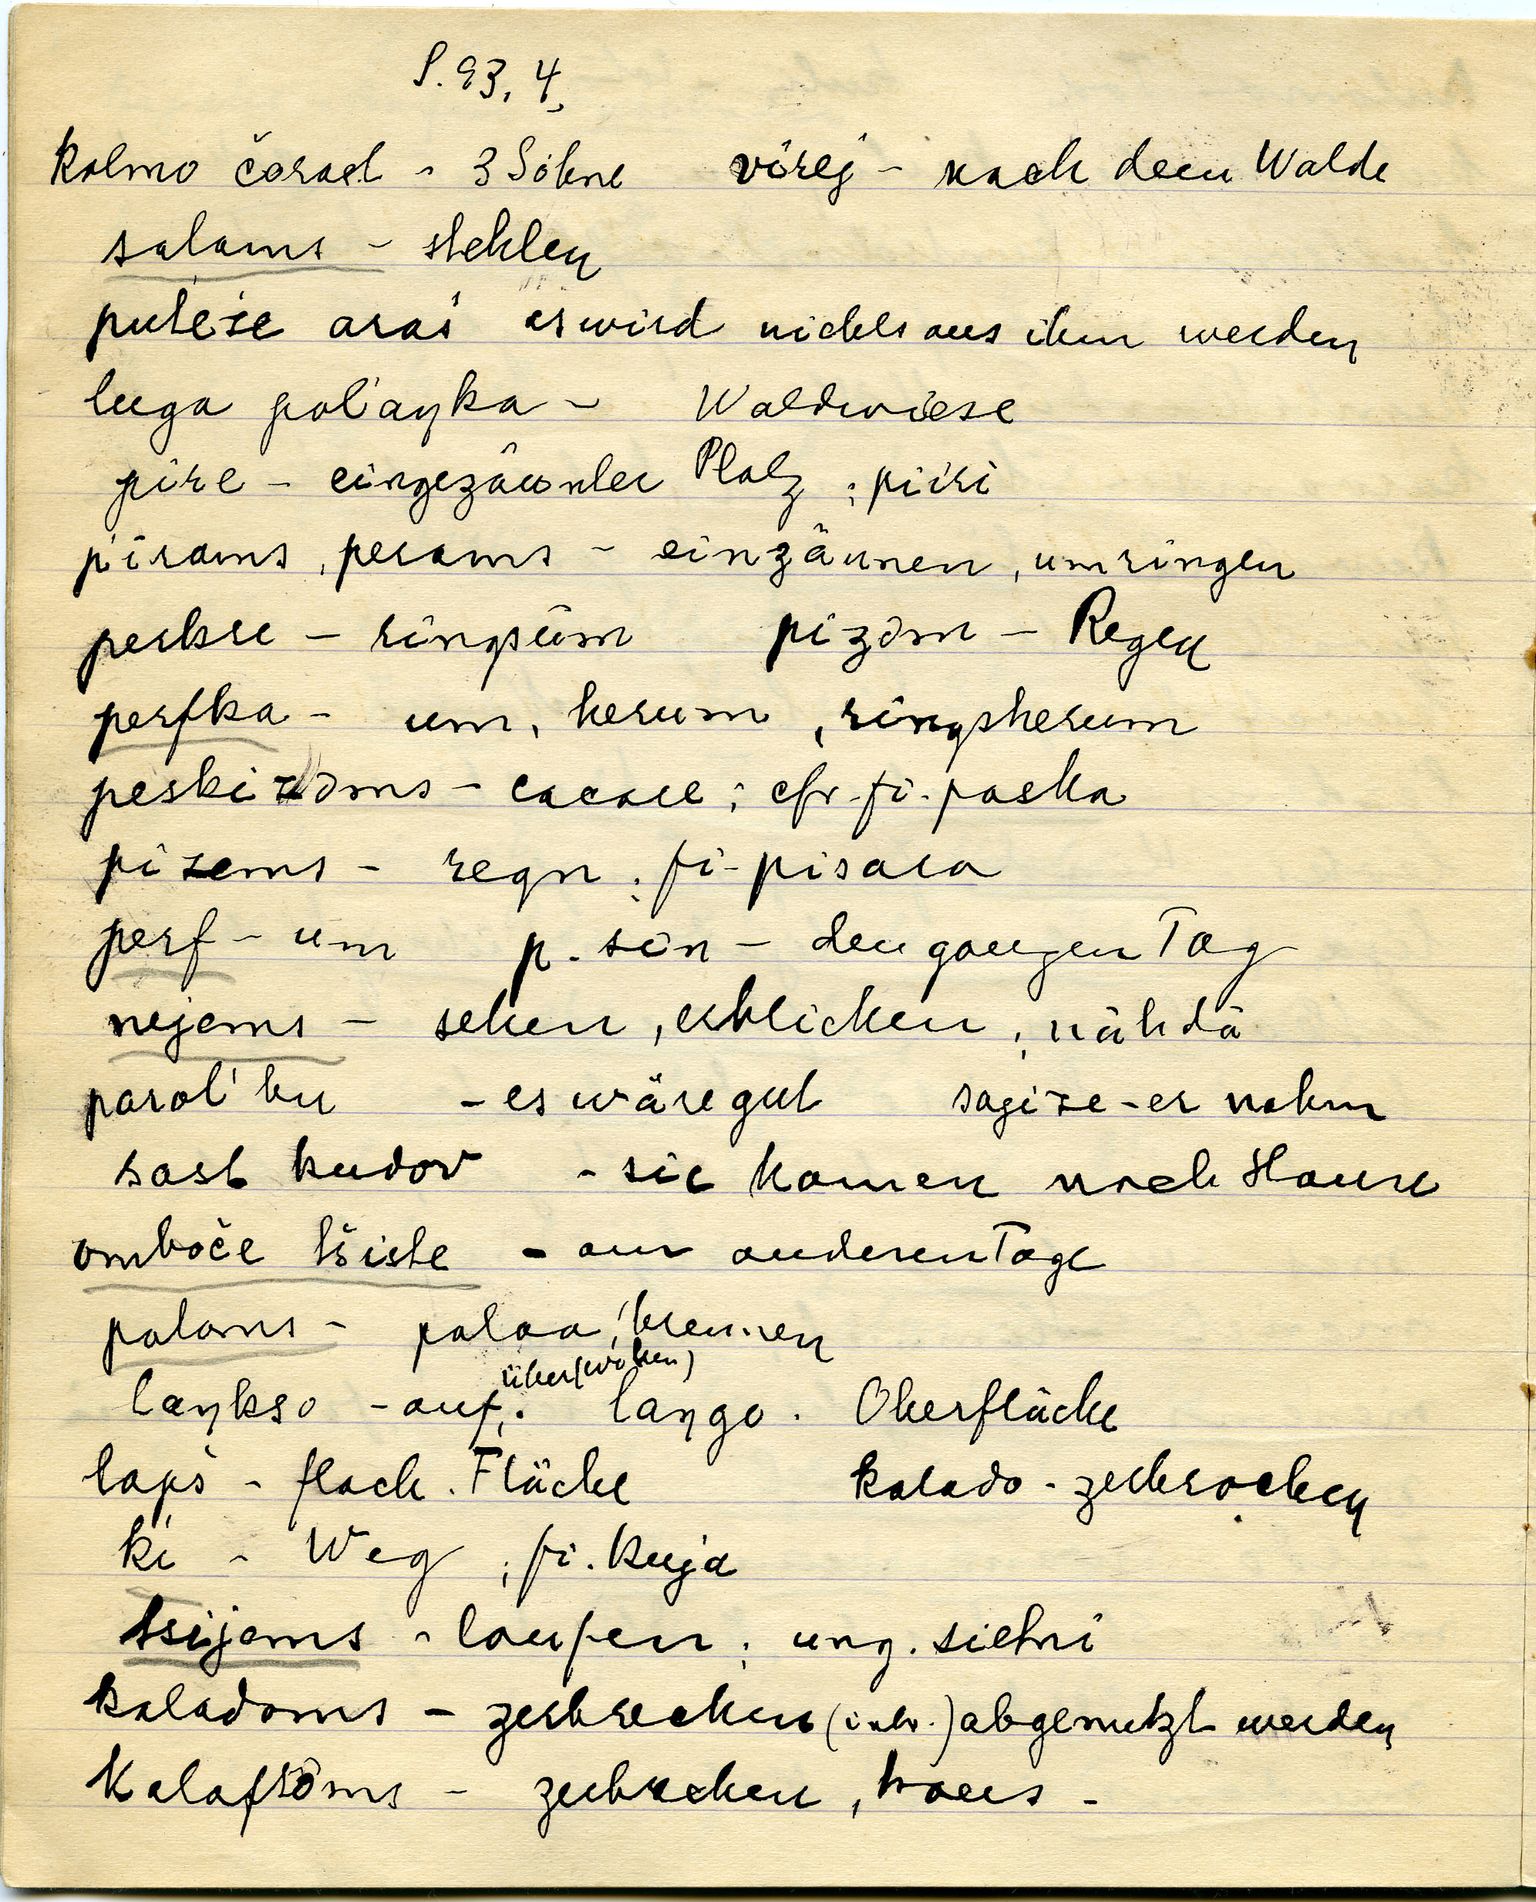 S. 93, 4,
kolmo čorad - 3 Söhne virej - nach dem Walde
salams - stehlen
putéže aras es wird nichts aus ihm werden
luga pol'aŋka - Waldwiese
pire - eingezäunter Platz ; piiri
pirams, perams - einzäunen, umringen
perkse - ringsum pizəm - Regen
perfka - um, herum, ringsherum
peskizəms - cacare ; cfr. fi. paska
pizems - regn ; fi. pisara
perf - um p. šin - den ganzen Tag
nejems - sehen, erblicken ; nähdä
parol' bu - es wäre gut sagize - er nahm
sast kudov - sie kamen nach Hause
omboče tšiste - am anderen Tage
palams - palaa, brennen
über (wohen)
laŋkso - auf, . laŋgo . Oberfläche
lapš - flach . Fläche kalado - zerbrochen
ki - Weg ; fi. kuja
tsijems - laufen ; ung. sietni
kaladoms - zerbrechen (intr.) abgenutzt werden
Kalaftoms - zerbrechen, trans -